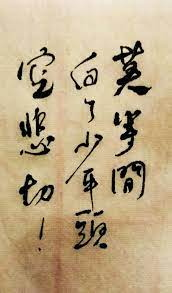 莫等閒
白了少年頭
空悲切!